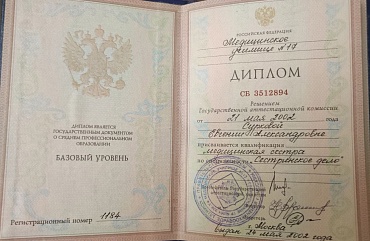 ДИПЛОМ ЯВЛЯЕТСЯ
ГОСУДАРСТВЕННЫМ ДОКУМЕНТОМ
О СРЕДНЕМ ПРОФЕССИОНАЛЬНОМ
ОБРАЗОВАНИИ
БАЗОВЫЙ УРОВЕНЬ
Регистрационный номер 1184
РОССИЙСКАЯ ФЕДЕРАЦИЯ
Медицинское
училище №17
ДИПЛОМ
СБ 3512894
Решением
Государственной аттестационной комиссии
от 21 мая 2002
Сурковой
Евгении Александровне
присваивается квалификация
медицинская сестра
по специальности „Сестринское дело"
Председатель Государственной
аттестационной комиссии
г. Москва
Выдан 24 мая 2002 года